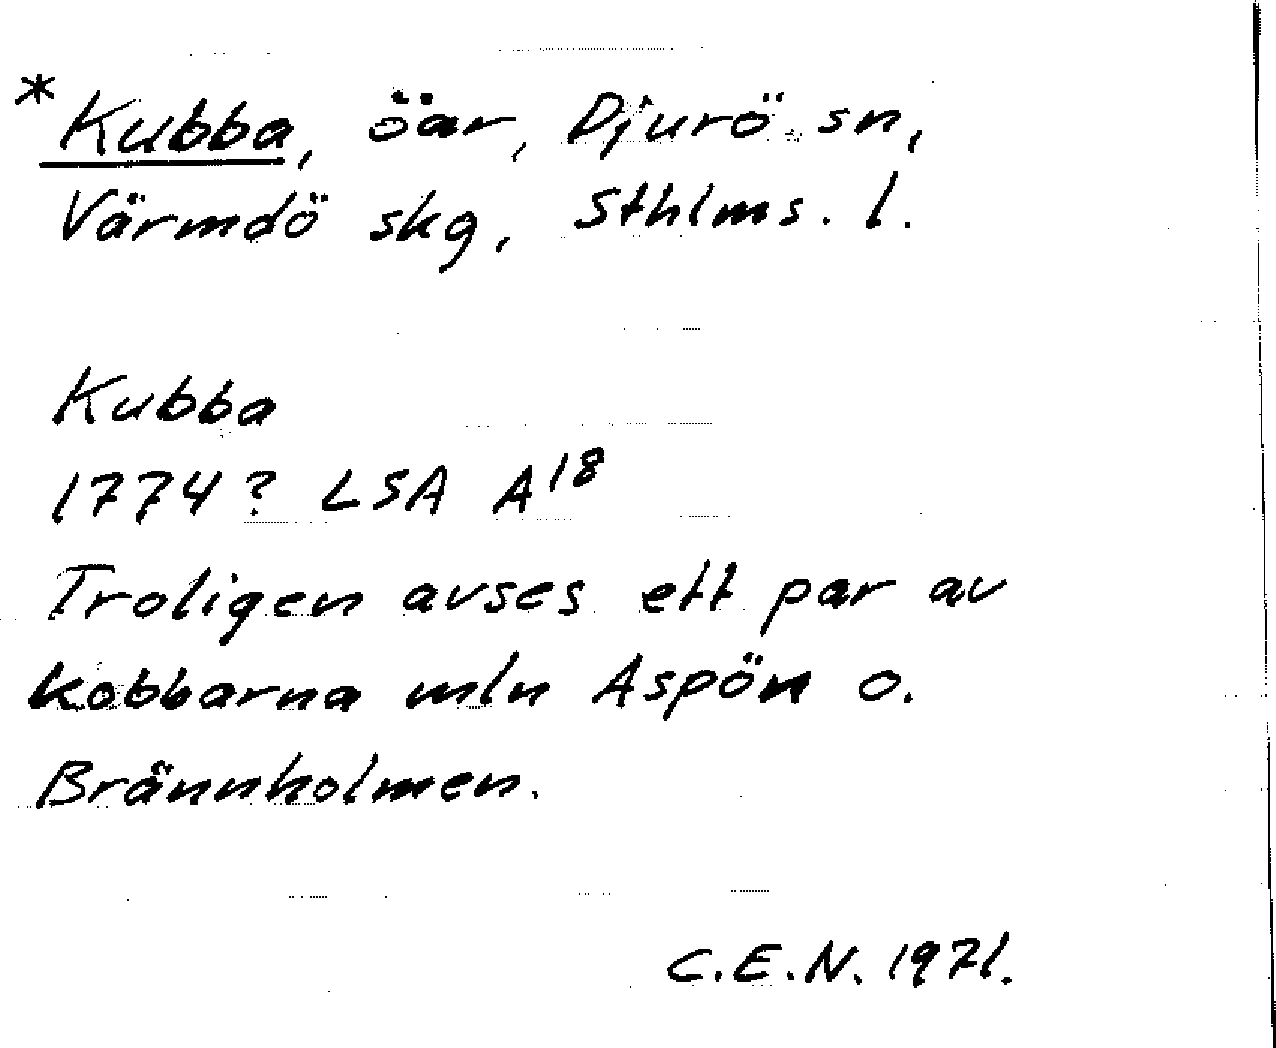 *Kubba, öar, Djurö sn,
Värmdö skg, Sthlms. l.
Kubba
1774? LSA A18
Troligen avses ett par av
kobbarna mln Aspön o.
Brännholmen.
C.E.N. 1971.